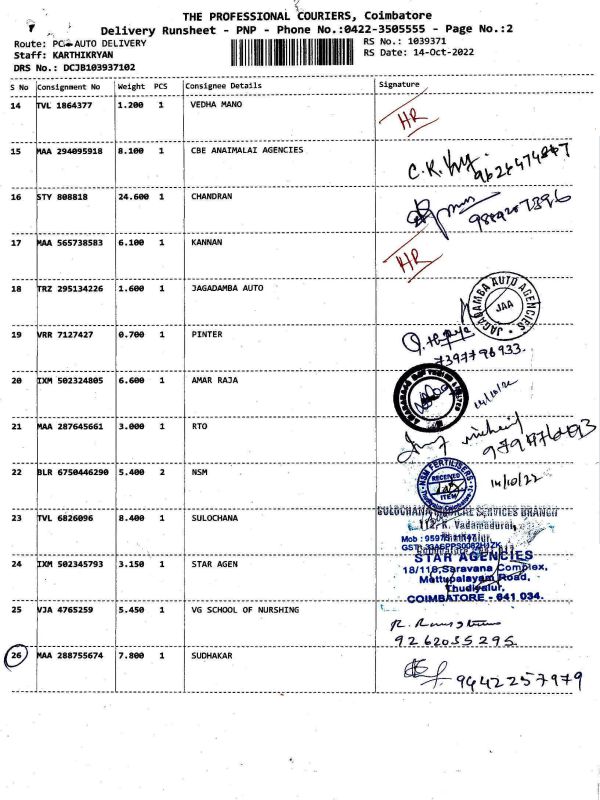 THE PROFESSIONAL COURIERS, Coimbatore
Delivery Runsheet - PNP - Phone No.:0422-3505555 - Page No.:2
Route: AUTO DELIVERY
RS No.: 1039371
Staff: KARTHIKRYAN
RS Date: 14-Oct-2022
DRS No.: DCJB103937102
S No Consignment No Weight PCS Consignee Details Signature
14 TVL 1864377 1.200 1 VEDHA MANO HR
15 MAA 294095918 8.100 1 CBE ANAIMALAI AGENCIES
16 STY 808818 24.600 1 CHANDRAN
17 MAA 565738583 6.100 1 KANNAN HR
18 TRZ 295134226 1.600 1 JAGADAMBA AUTO
JAGADAMBA AUTO AGENCIES
JAA
19 VRR 7127427 0.700 1 PINTER
7397796933.
20 IXM 502324805 6.600 1 AMAR RAJA 14/10/22
21 MAA 287645661 3.000 1 RTO
22 BLR 6750446290 5.400 2 NSM
NSM FERTILISERS
RECEIVED
ITEM
14/10/22
23 TVL 6826096 8.400 1 SULOCHANA
SERVICES BRANCH
112, K. Vadamadurai,
24 IXM 502345793 3.150 1 STAR AGEN
STAR AGENCIES
18/118, Saravana Complex,
Mettupalayam Road,
Thudiyalur,
COIMBATORE - 641 034.
25 VJA 4765259 5.450 1 VG SCHOOL OF NURSHING
9262035295
26 MAA 288755674 7.800 1 SUDHAKAR
9442257979